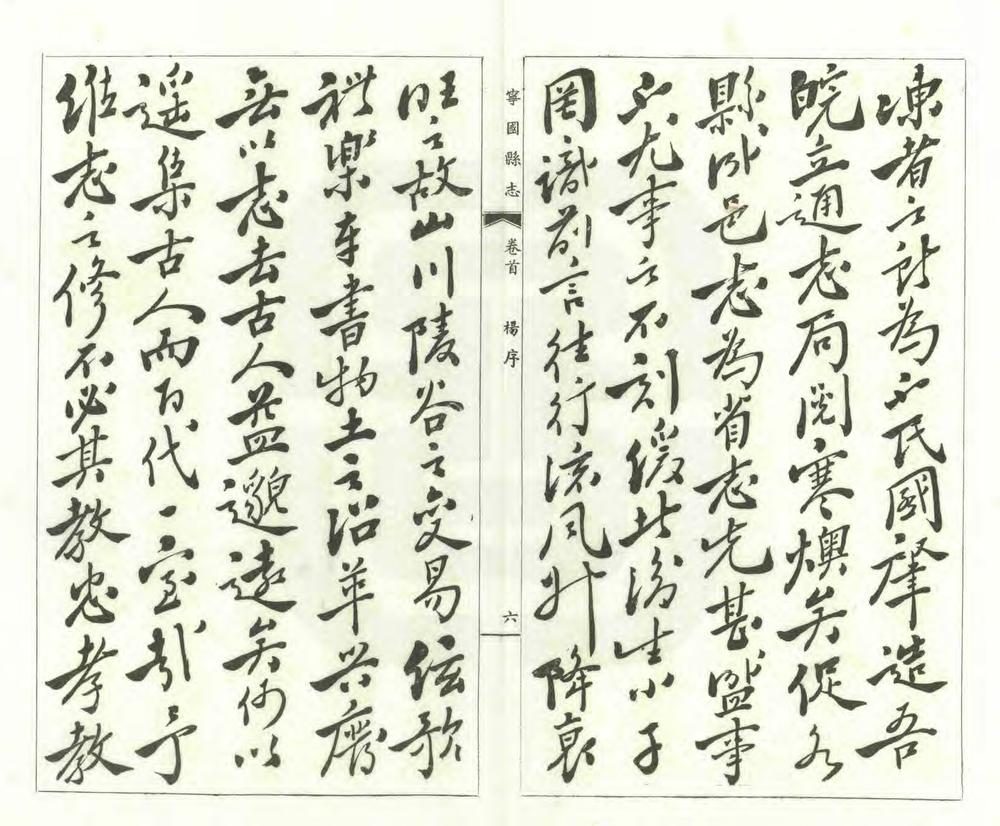 凍者之所為也民國肇造吾
皖立通志局閱寒燠矣促各
縣邑志為省志先甚盛事
也尤事之不刻緩此後生小子
罔識前言往行流風升降衰
寧國縣志 卷首 楊序 六
旺之故山川陵谷之變易絃歌
禮樂車書物土之沿革興廢
無以志去古人益邈遠矣何以
遥集古人而百代一室哉予
維志之修不必其教忠孝教